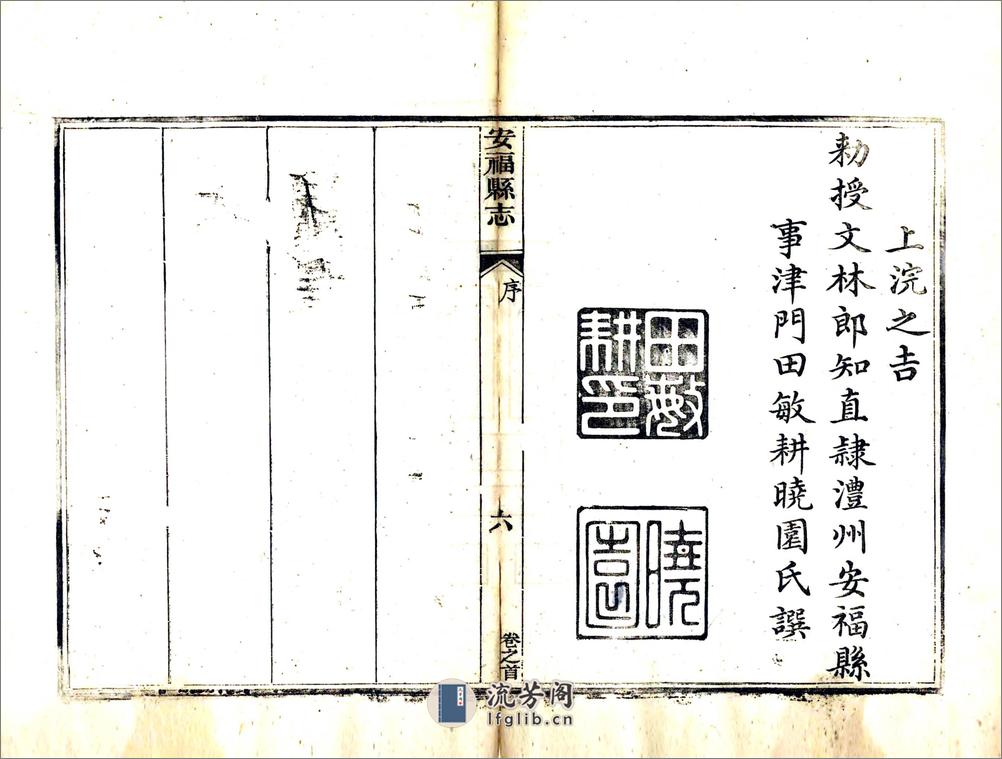 上浣之吉
勅授文林郎知直隷澧州安福縣
事津門田敏耕曉園氏譔
田敏
耕印
曉
園
安福縣志
序
六
卷之首
流芳阁
lfglib.cn